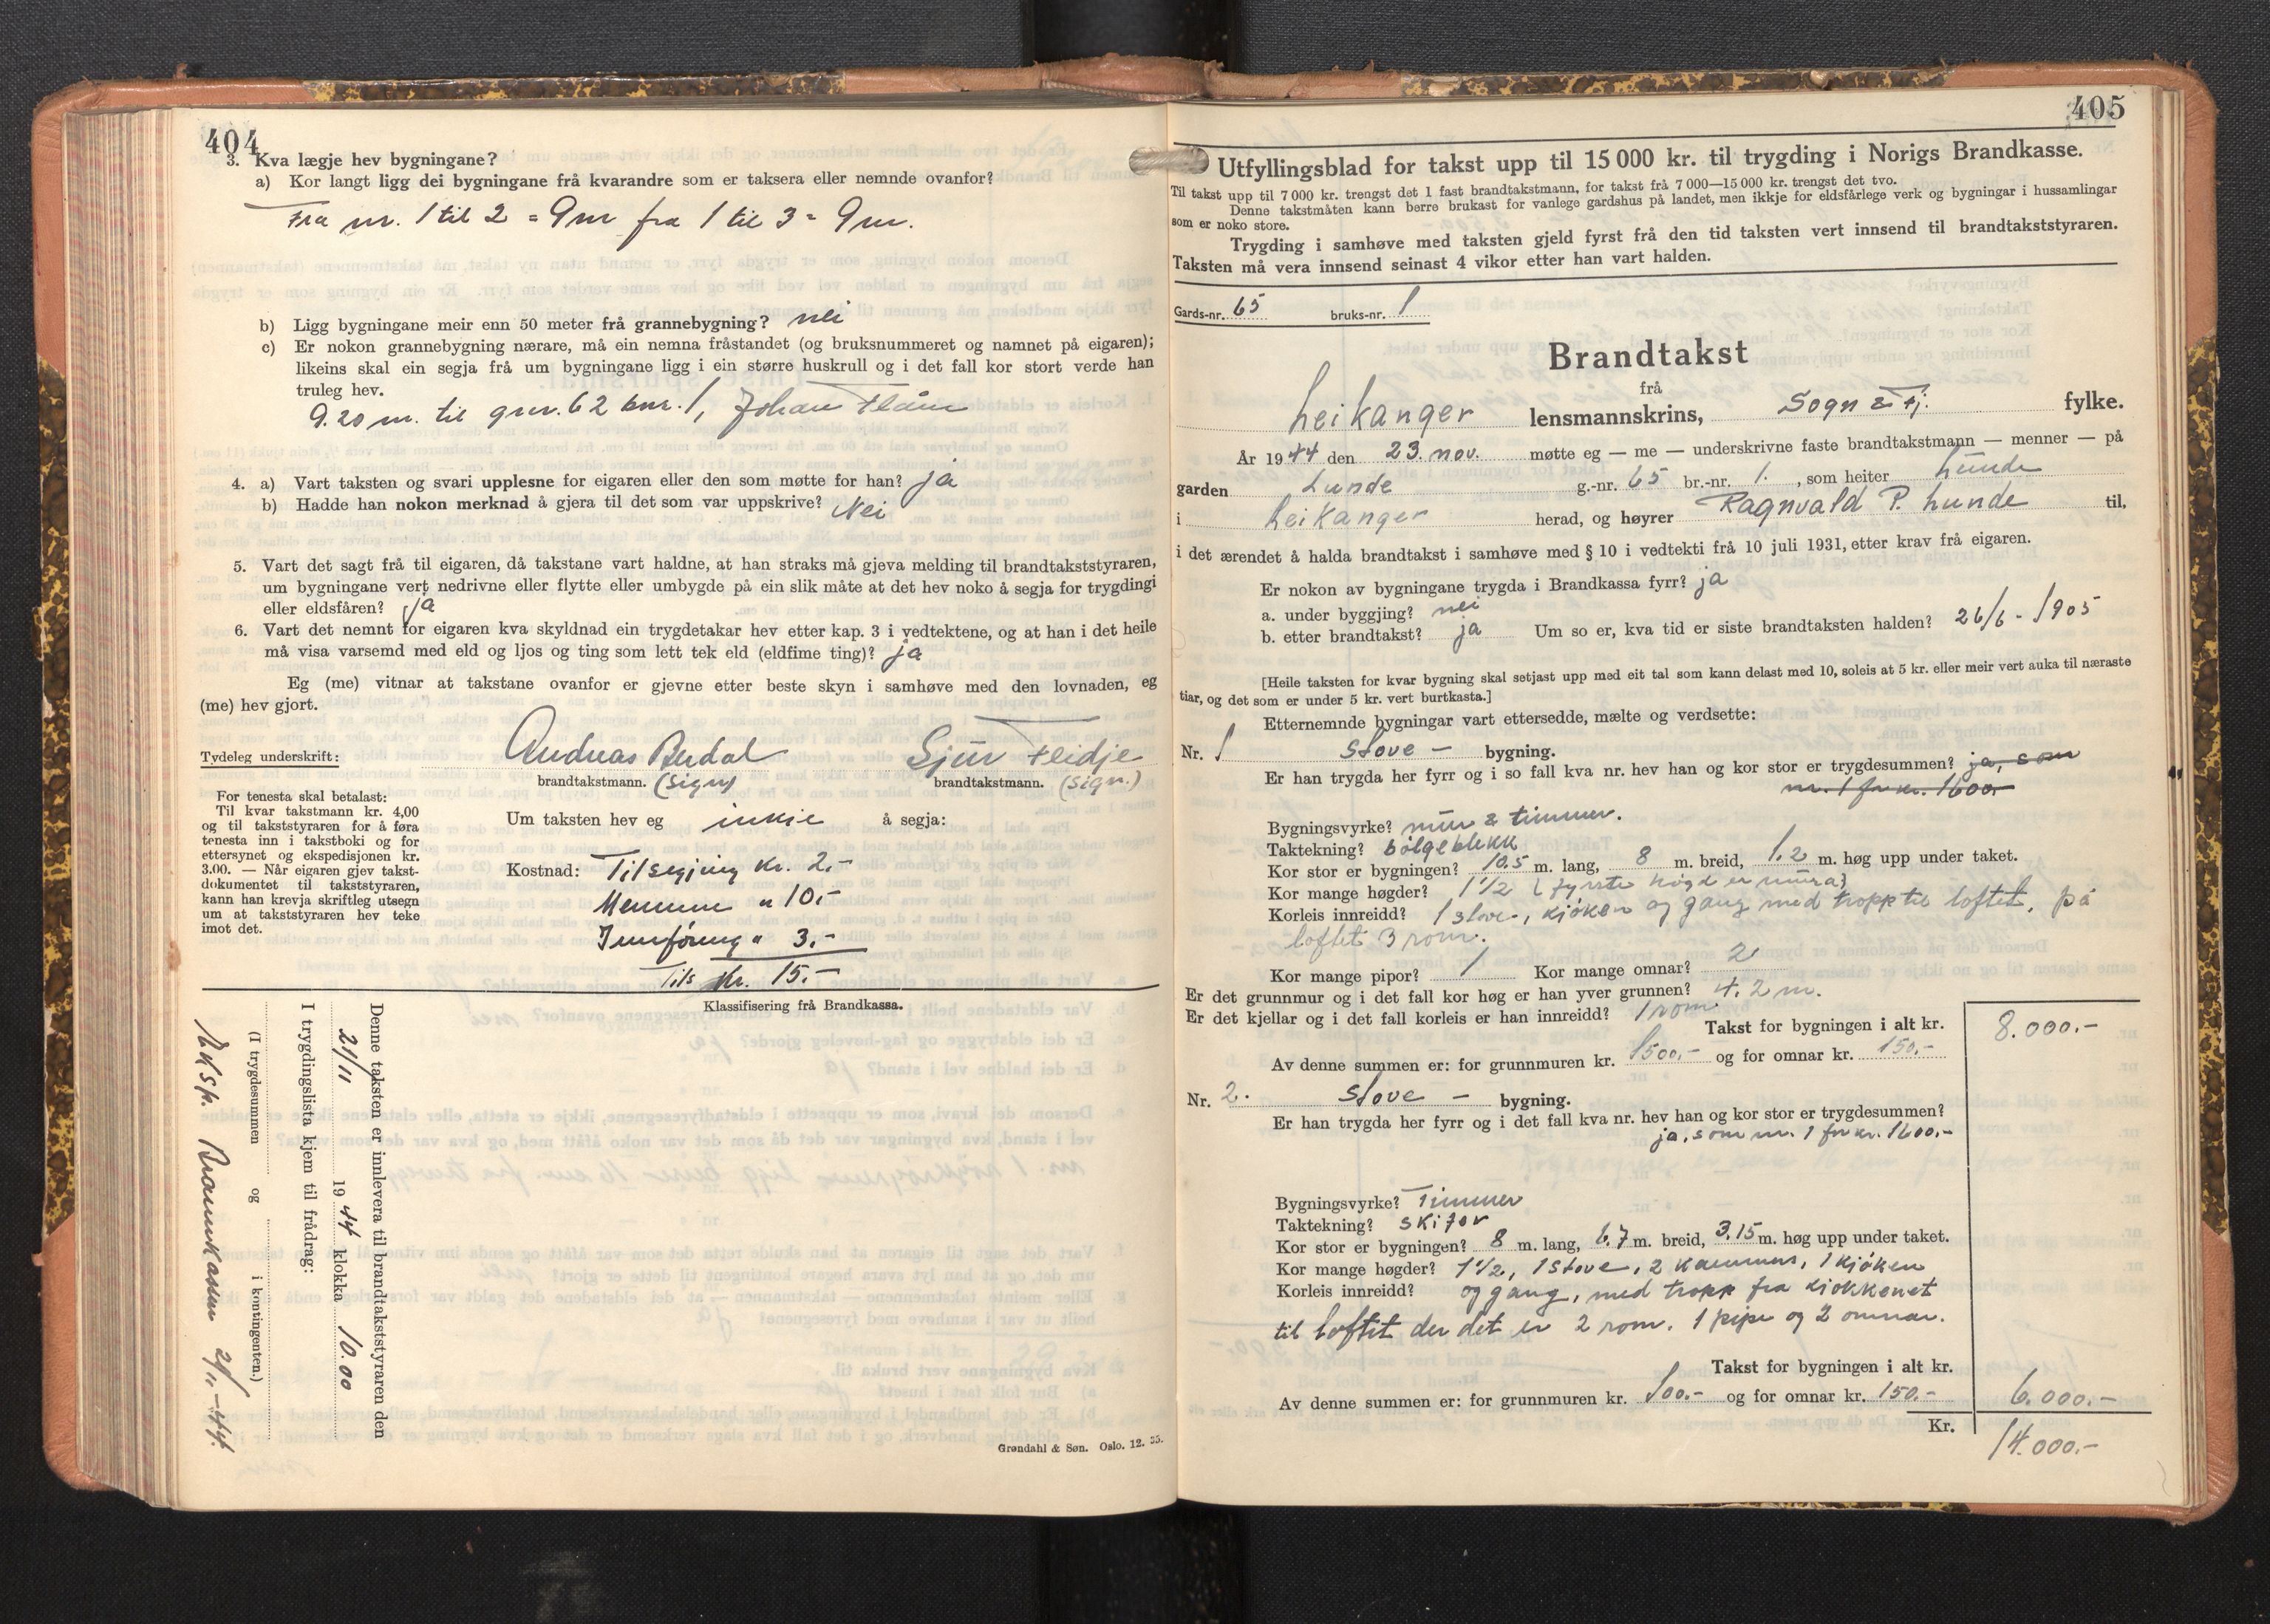 404
3. Kva lægje hev bygningane?
a) Kor langt ligg dei bygningane frå kvarandre som er taksera eller nemnde ovanfor?
Fra nr. 1 til 2 = 9m fra 1 til 3 = 9 m.
b) Ligg bygningane meir enn 50 meter frå grannebygning? nei
c) Er nokon grannebygning nærare, må ein nemna fråstandet (og bruksnummeret og namnet på eigaren);
likeins skal ein segja frå um bygningane ligg i ein større huskrull og i det fall kor stort verde han
truleg hev.
9.20 m. til gnr. 62 bnr. 1, Johan Flåm
4. a) Vart taksten og svari upplesne for eigaren eller den som møtte for han? ja
b) Hadde han nokon merknad å gjera til det som var uppskrive? Nei
5. Vart det sagt frå til eigaren, då takstane vart haldne, at han straks må gjeva melding til brandtakststyraren,
um bygningane vert nedrivne eller flytte eller umbygde på ein slik måte at det hev noko å segja for trygdingi
eller eldsfåren? ja
6. Vart det nemnt for eigaren kva skyldnad ein trygdetakar hev etter kap. 3 i vedtektene, og at han i det heile
må visa varsemd med eld og ljos og ting som lett tek eld (eldfime ting)? ja
Eg (me) vitnar at takstane ovanfor er gjevne etter beste skyn i samhøve med den lovnaden, eg
(me) hev gjort.
Tydeleg underskrift: Andreas Sjur
brandtakstmann. (sign) brandtakstmann. (sign.)
For tenesta skal betalast:
Til kvar takstmann kr. 4,00
og til takststyraren for å føra
tenesta inn i takstboki og for
ettersynet og ekspedisjonen kr.
3.00. — Når eigaren gjev takst-
dokumentet til takststyraren,
kann han krevja skriftleg utsegn
um at takststyraren hev teke
imot det.
Um taksten hev eg inkje å segja:
Kostnad: Tilsegjing kr. 2.-
Mennene " 10.-
Innføring " 3.-
Tils kr. 15.-
Klassifisering frå Brandkassa.
Denne taksten er innlevera til brandtakststyraren den
21/11 1944 klokka 10.00
I trygdingslista kjem til frådrag:
(I trygdesummen og i kontingenten.)
Eksp. Brannkassen 21/11-44.
Grøndahl & Søn. Oslo. 12. 35.
405
Utfyllingsblad for takst upp til 15 000 kr. til trygding i Norigs Brandkasse.
Til takst upp til 7 000 kr. trengst det 1 fast brandtakstmann, for takst frå 7 000—15 000 kr. trengst det tvo.
Denne takstmåten kann berre brukast for vanlege gardshus på landet, men ikkje for eldsfårlege verk og bygningar i hussamlingar
som er noko store.
Trygding i samhøve med taksten gjeld fyrst frå den tid taksten vert innsend til brandtakststyraren.
Taksten må vera innsend seinast 4 vikor etter han vart halden.
Gards-nr. 65 bruks-nr. 1
Brandtakst
frå
Leikanger lensmannskrins, Sogn & Fj. fylke.
År 1944 den 23. nov. møtte eg — me — underskrivne faste brandtakstmann — menner — på
garden Lunde g.-nr. 65 br.-nr. 1. , som heiter Lunde
i Leikanger herad, og høyrer Ragnvald P. Lunde til,
i det ærendet å halda brandtakst i samhøve med § 10 i vedtekti frå 10 juli 1931, etter krav frå eigaren.
Er nokon av bygningane trygda i Brandkassa fyrr? ja
a. under byggjing? nei
b. etter brandtakst? ja Um so er, kva tid er siste brandtaksten halden? 26/6 - 1905
[Heile taksten for kvar bygning skal setjast upp med eit tal som kann delast med 10, soleis at 5 kr. eller meir vert auka til næraste
tiar, og det som er under 5 kr. vert burtkasta.]
Etternemnde bygningar vart ettersedde, mælte og verdsette:
Nr. 1 Stove - bygning.
Er han trygda her fyrr og i so fall kva nr. hev han og kor stor er trygdesummen? ja, som
nr. 1 for kr. 1600.-
Bygningsvyrke? mur & timmer.
Taktekning? bølgeblekk
Kor stor er bygningen? 10.5 m. lang, 8 m. breid, 1.2 m. høg upp under taket.
Kor mange høgder? 1 1/2 (fyrste høgd er mura)
Korleis innreidd? 1 stove, kjøken og gang med tropp til loftet, på
loftet 3 rom.
Kor mange pipor? 1 Kor mange omnar? 2
Er det grunnmur og i det fall kor høg er han yver grunnen? 4.2 m.
Er det kjellar og i det fall korleis er han innreidd? 1 rom
Takst for bygningen i alt kr. 8.000.-
Av denne summen er: for grunnmuren kr. 1500.- og for omnar kr. 150.-
Nr. 2. Stove - bygning.
Er han trygda her fyrr og i det fall kva nr. hev han og kor stor er trygdesummen?
ja, som nr. 1 for kr. 1600.-
Bygningsvyrke? Timmer
Taktekning? skifer
Kor stor er bygningen? 8 m. lang, 6.7 m. breid, 3.15 m. høg upp under taket.
Kor mange høgder? 1 1/2, 1 stove, 2 kammers, 1 kjøken
Korleis innreidd? og gang, med tropp fra kjøkkenet
til loftet der det er 2 rom. 1 pipe og 2 omnar.
Takst for bygningen i alt kr. 6.000.-
Av denne summen er: for grunnmuren kr. 100.- og for omnar kr. 150.-
Kr. 14.000.-